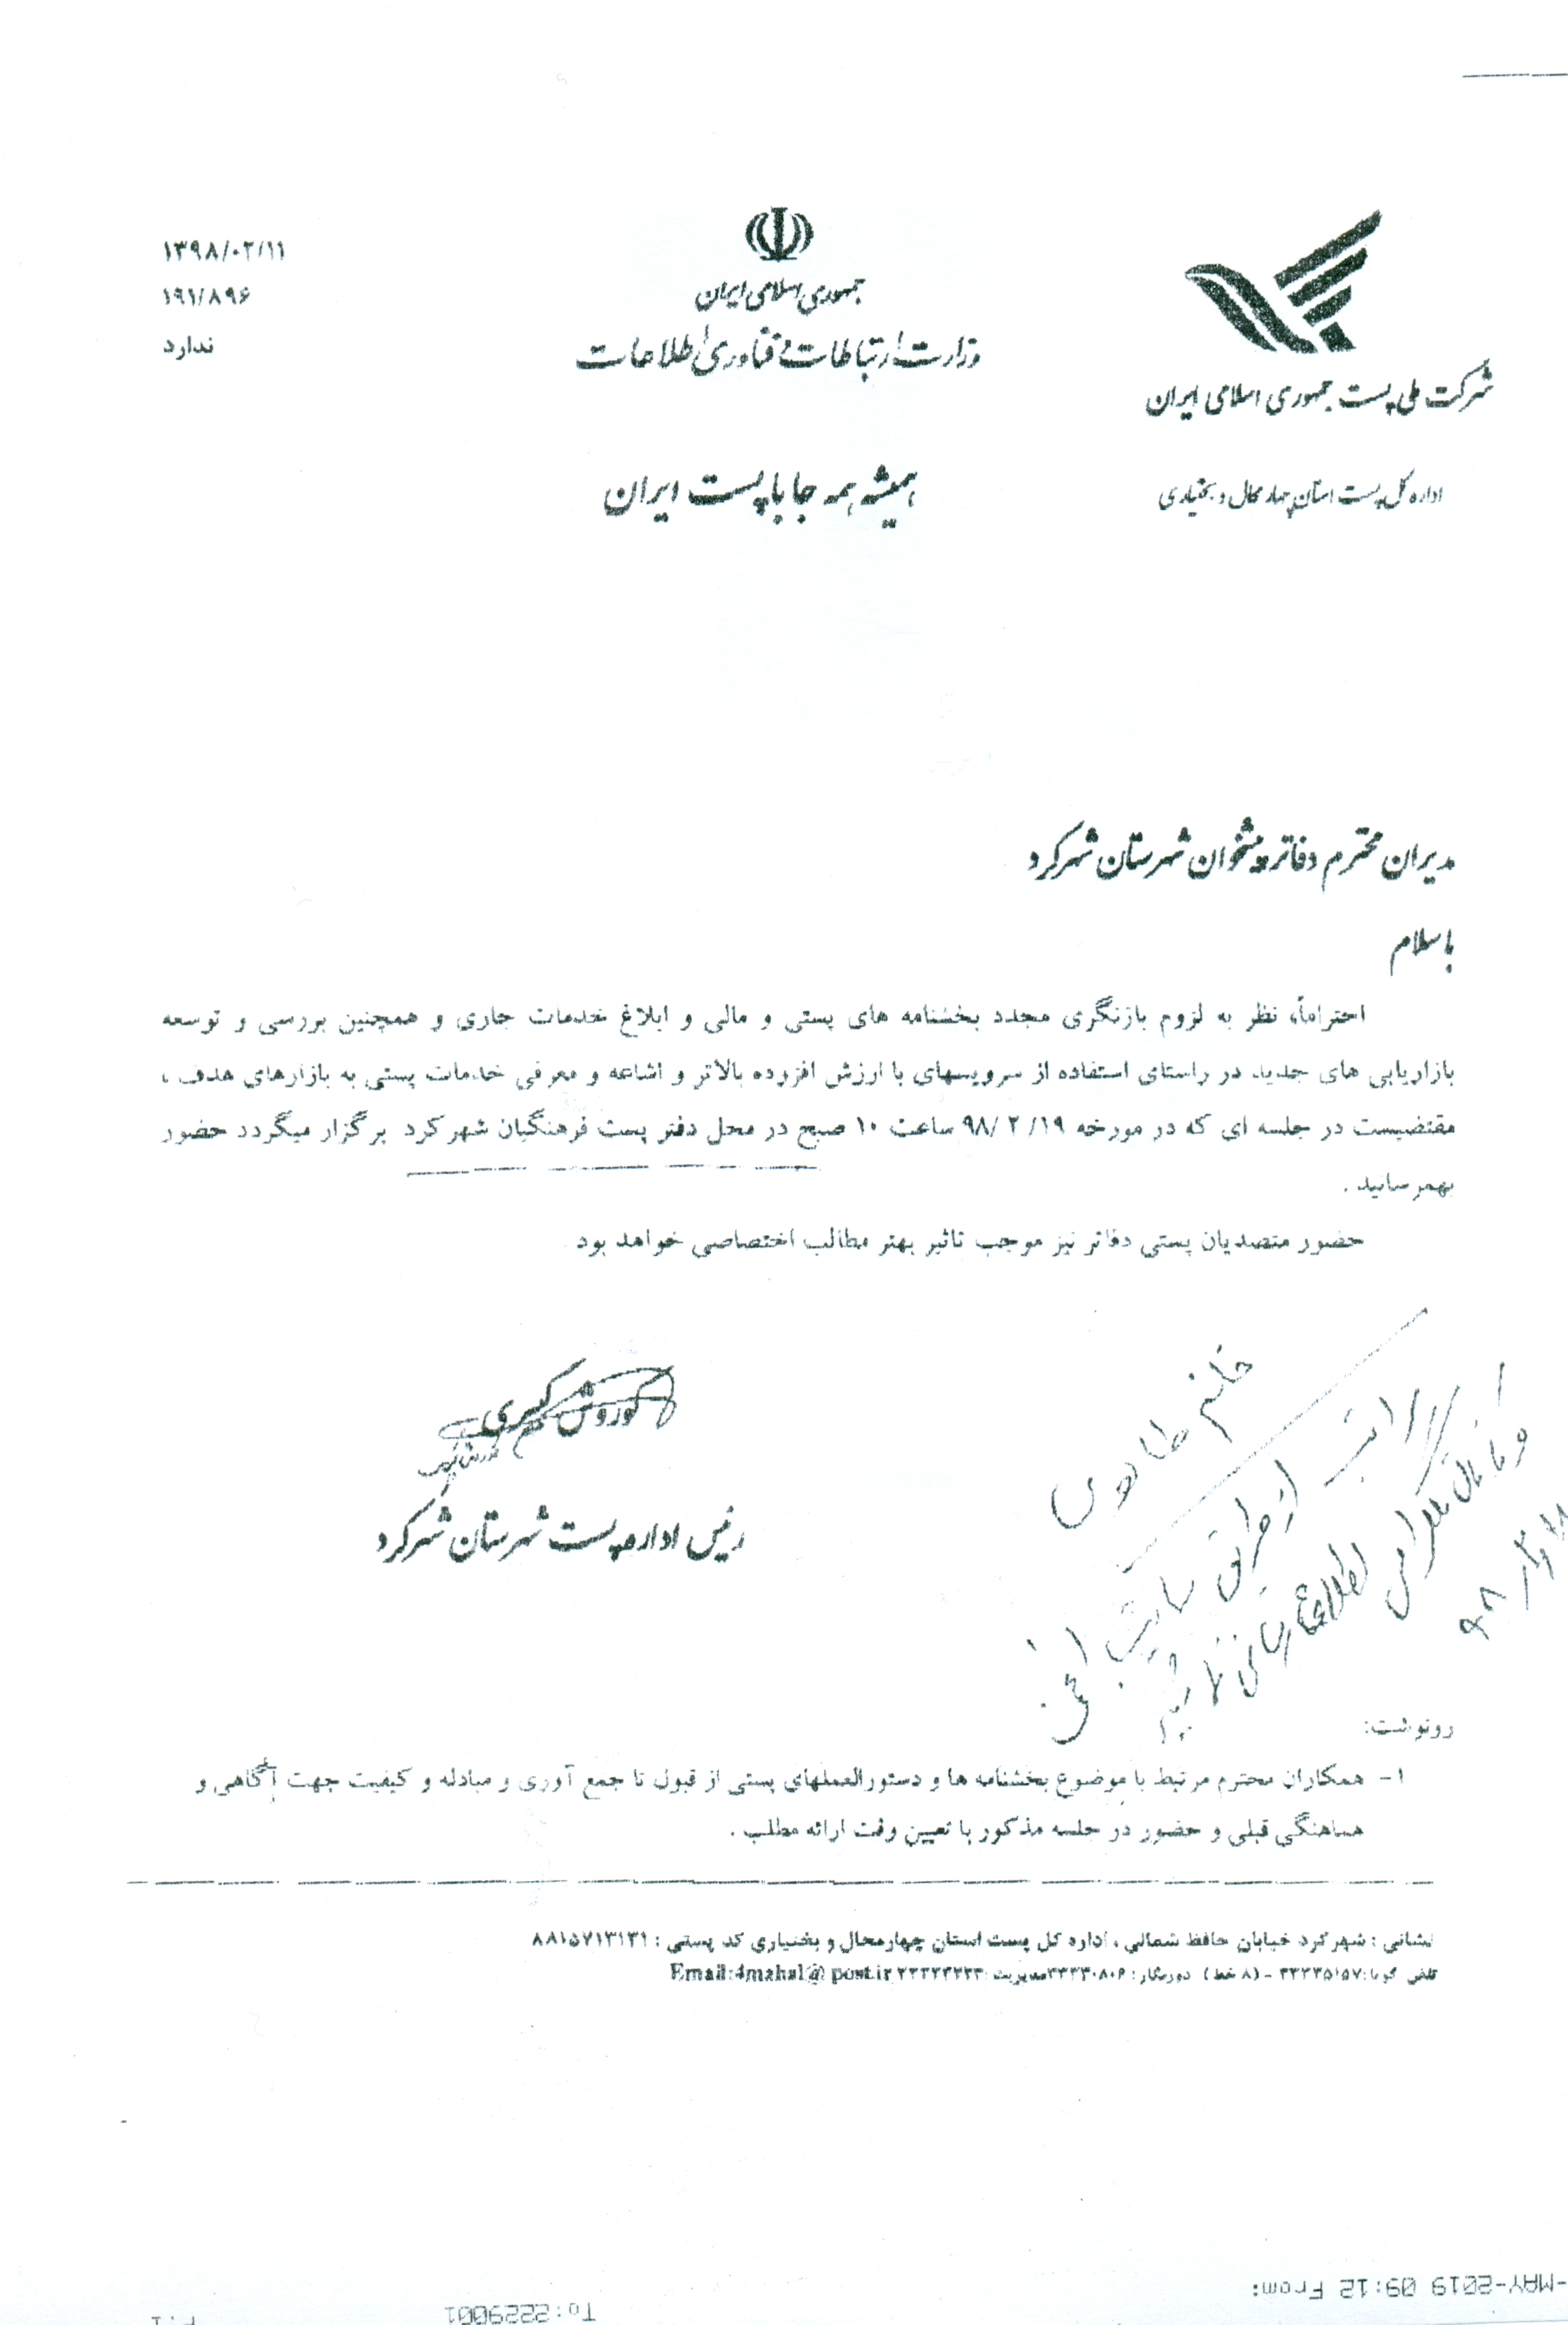 ۱۳۹۸/۰۲/۱۱
۱۹۱/۸۹۶
ندارد
جمهوری اسلامی ایران
وزارت ارتباطات و فناوری اطلاعات
همیشه همه جا با پست ایران
شرکت ملی پست جمهوری اسلامی ایران
اداره کل پست استان چهارمحال و بختیاری
مدیران محترم دفاتر پیشخوان شهرستان شهرکرد
با سلام
احتراماً، نظر به لزوم بازنگری مجدد بخشنامه های پستی و مالی و ابلاغ خدمات جاری و همچنین بررسی و توسعه
بازاریابی های جدید در راستای استفاده از سرویسهای با ارزش افزوده بالاتر و اشاعه و معرفی خدمات پستی به بازارهای هدف ،
مقتضیست در جلسه ای که در مورخه ۹۸/ ۲ /۱۹ ساعت ۱۰ صبح در محل دفتر پست فرهنگیان شهرکرد برگزار میگردد حضور
بهمرسانید .
حضور متصدیان پستی دفاتر نیز موجب تاثیر بهتر مطالب اختصاصی خواهد بود
کوروش کبیری
رئیس اداره پست شهرستان شهرکرد
خانم طاوسی
مراتب از طریق سایت انجمن
و کانال تلگرامی اطلاع رسانی نمائیم
رونوشت:
۱- همکاران محترم مرتبط با موضوع بخشنامه ها و دستورالعملهای پستی از قبول تا جمع آوری و مبادله و کیفیت جهت آگاهی و
هماهنگی قبلی و حضور در جلسه مذکور با تعیین وقت ارائه مطلب .
نشانی : شهرکرد خیابان حافظ شمالی ، اداره کل پست استان چهارمحال و بختیاری کد پستی : ۸۸۱۵۷۱۳۱۳۱
تلفن گویا: ۳۲۲۲۵۱۵۷ - (۸ خط) دورنگار: ۳۲۲۳۰۸۰۶ مدیریت: Email:4mahal@post.ir
-MAY-2019 09:12 From:
To:2229001
P.1